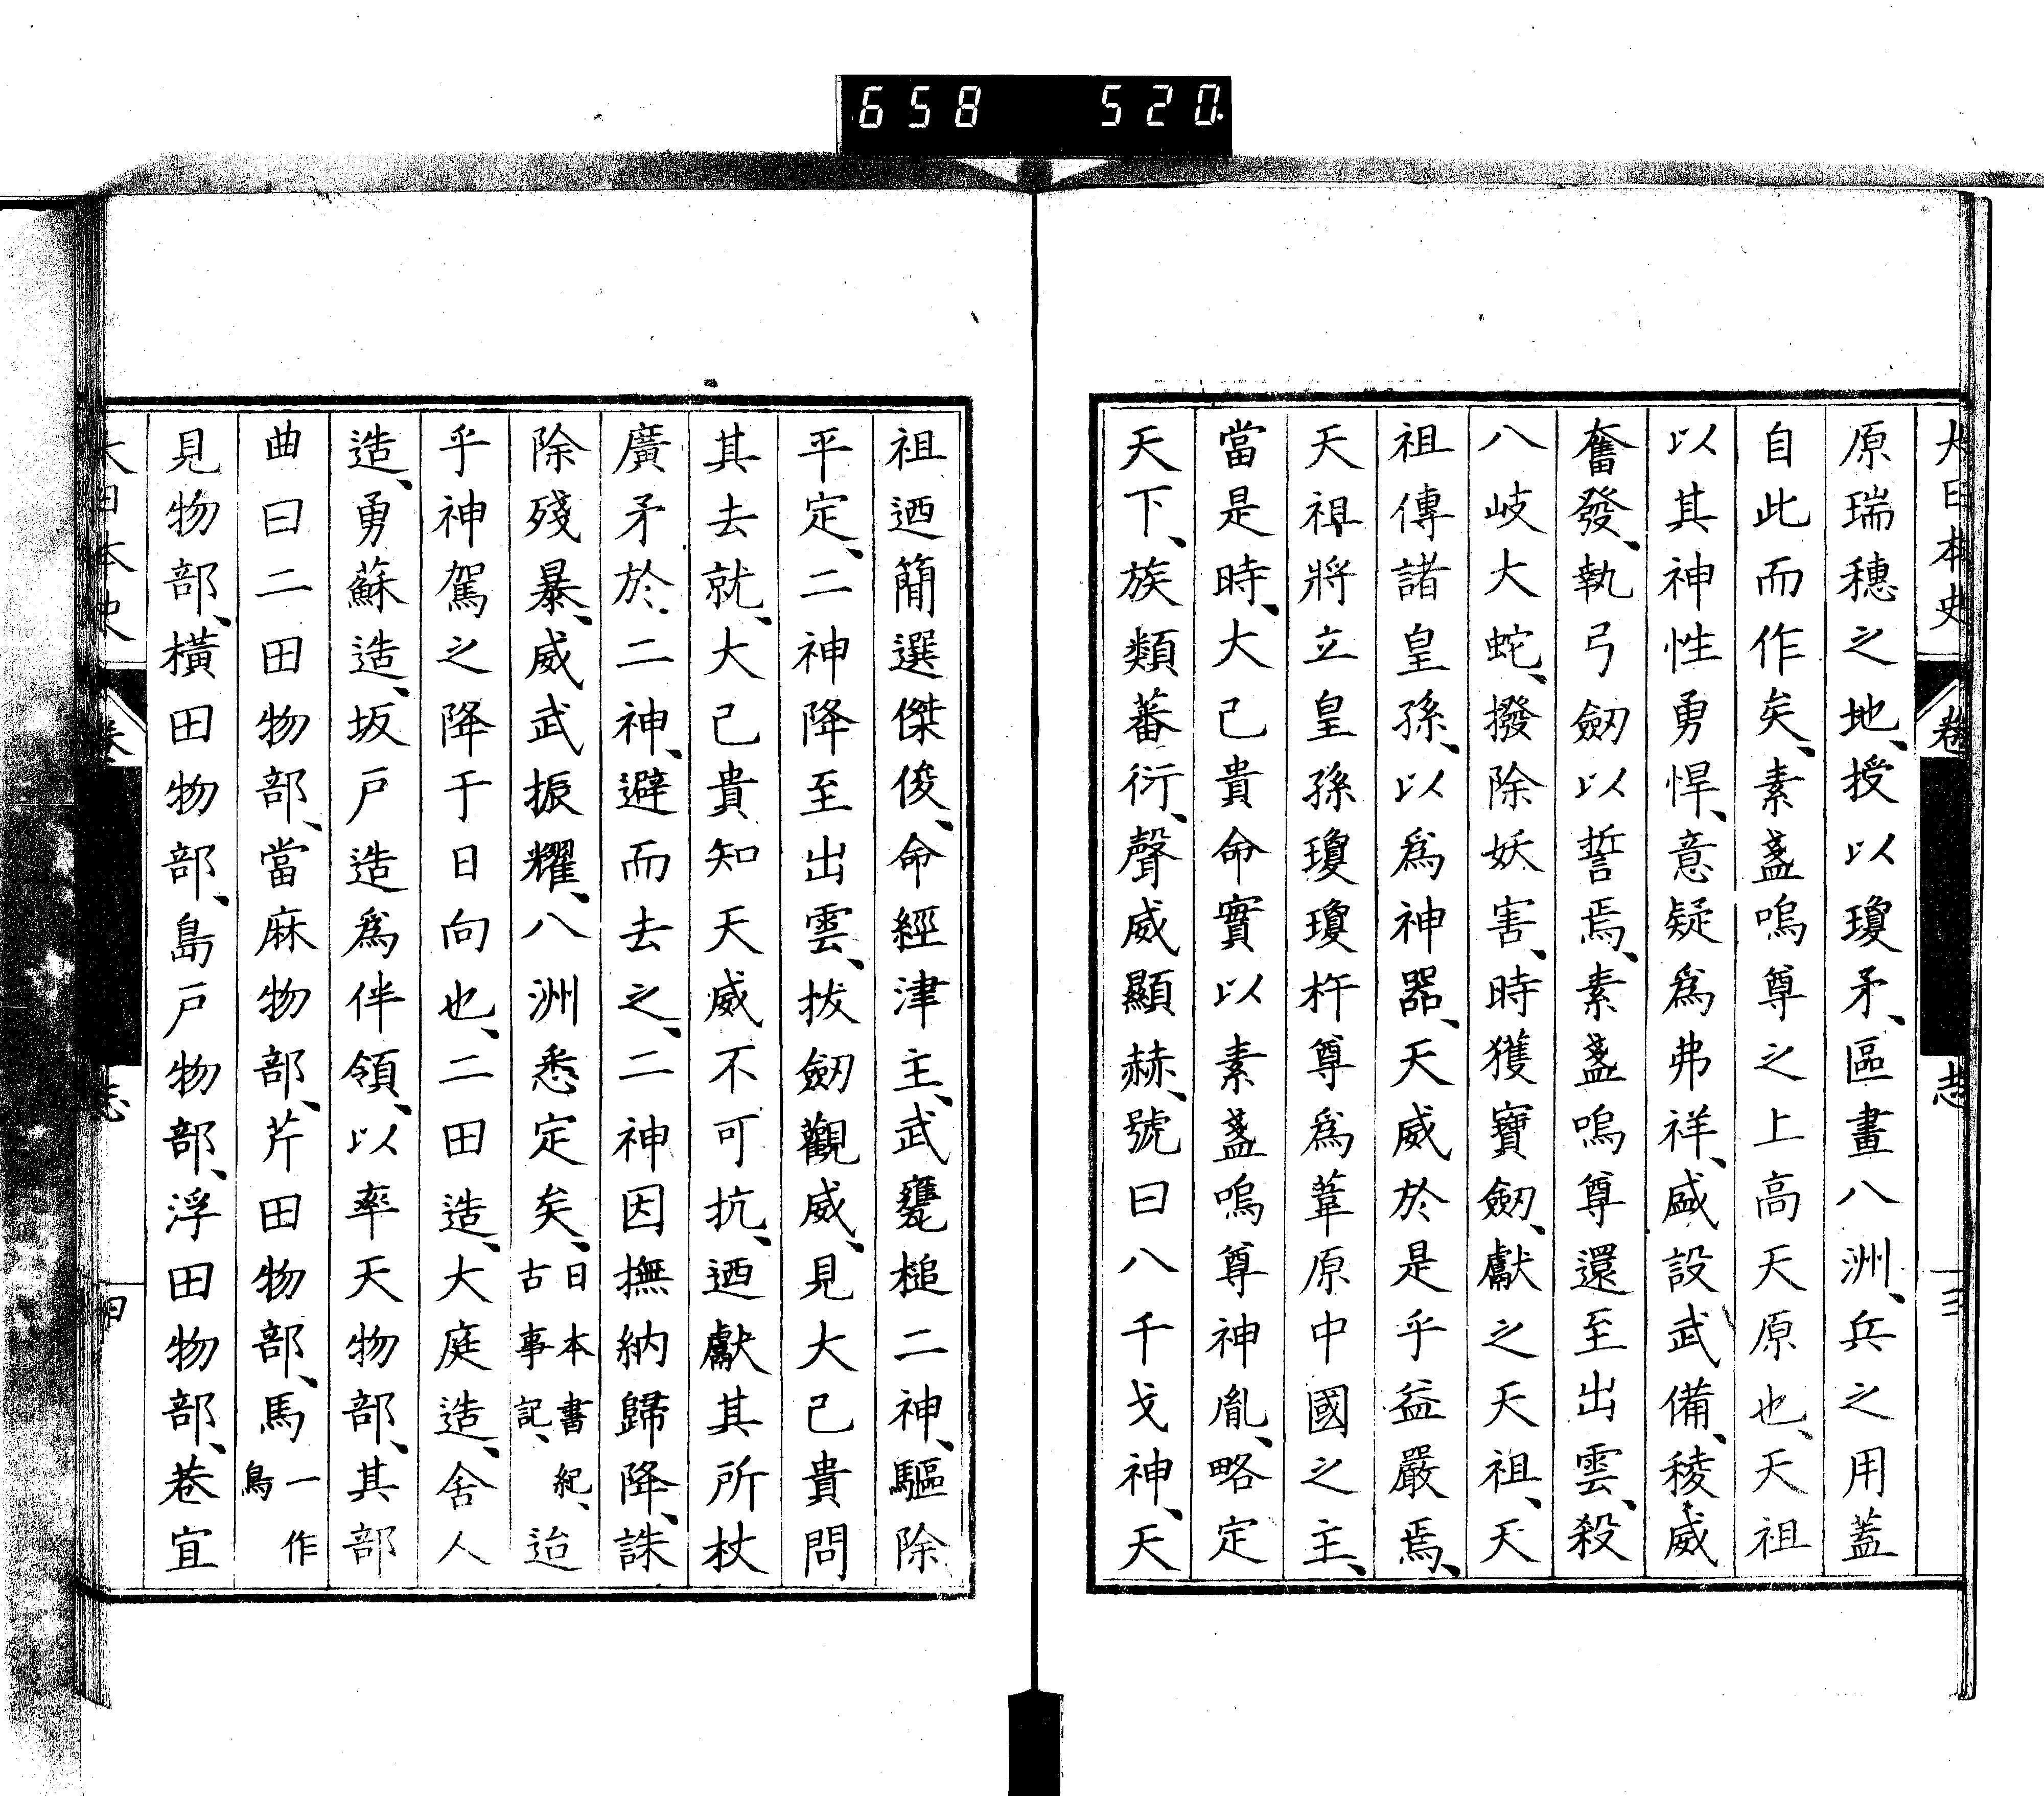 658 520
大日本史 卷 志 三
原瑞穗之地、授以瓊矛、區畫八洲、兵之用蓋
自此而作矣、素盞嗚尊之上高天原也、天祖
以其神性勇悍、意疑爲弗祥、盛設武備、稜威
奮發、執弓劒以誓焉、素盞嗚尊還至出雲、殺
八岐大蛇、撥除妖害、時獲寶劒、獻之天祖、天
祖傳諸皇孫、以爲神器、天威於是乎益嚴焉、
天祖將立皇孫瓊瓊杵尊爲葦原中國之主、
當是時、大己貴命實以素盞嗚尊神胤、略定
天下、族類蕃衍、聲威顯赫、號曰八千戈神、天
祖迺簡選傑俊、命經津主、武甕槌二神、驅除
平定、二神降至出雲、拔劒觀威、見大己貴問
其去就、大己貴知天威不可抗、迺獻其所杖
廣矛於、二神、避而去之、二神因撫納歸降、誅
除殘暴、威武振耀、八洲悉定矣、日本書紀、古事記、迨
乎神駕之降于日向也、二田造、大庭造、舍人
造、勇蘇造、坂戶造爲伴領、以率天物部、其部
曲曰二田物部、當麻物部、芹田物部、馬一作鳥
見物部、橫田物部、島戶物部、浮田物部、巷宜
大日本史 卷 志 四